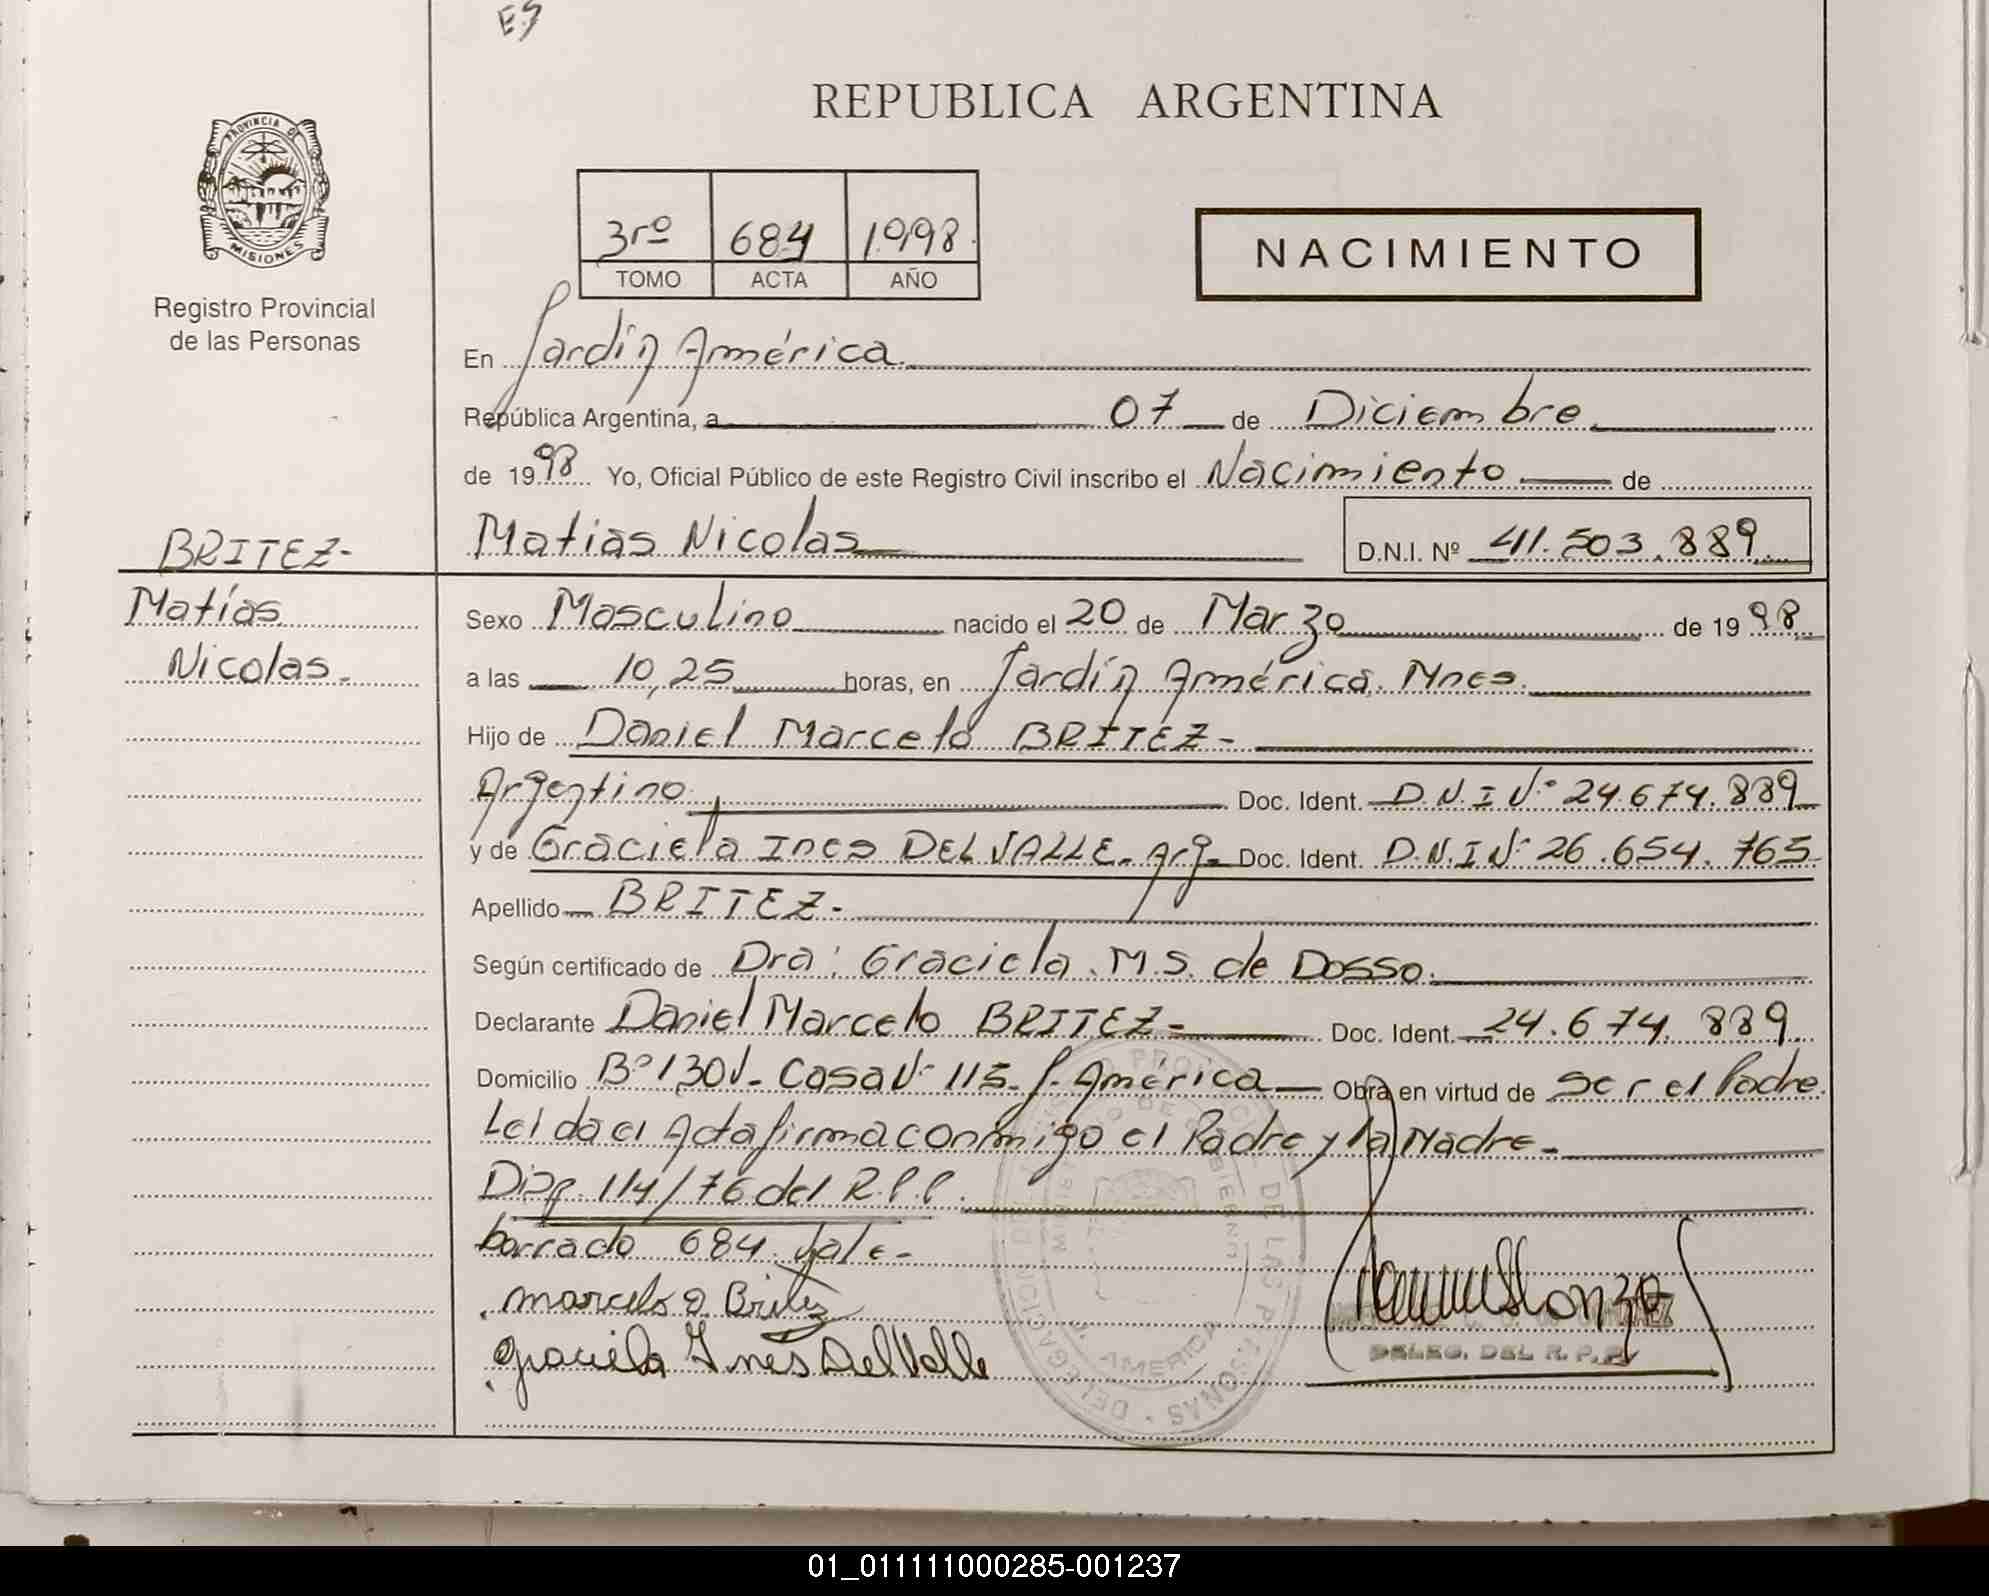 ES
REPUBLICA ARGENTINA
PROVINCIA DE
MISIONES
Registro Provincial
de las Personas
3ro 684 1998
TOMO ACTA AÑO
NACIMIENTO
En Jardín América.
República Argentina, a 07 de Diciembre
de 1998 Yo, Oficial Público de este Registro Civil inscribo el Nacimiento de
BRITEZ-
Matías Nicolas
Matias Nicolas D.N.I. Nº 41.503.889
Sexo Masculino nacido el 20 de Marzo de 1998
a las 10,25 horas, en Jardín América. Mnes.
Hijo de Daniel Marcelo BRITEZ-
Argentino Doc. Ident. D.N.I Nº 24.674.889
y de Graciela Ines DEL VALLE- Arg- Doc. Ident. D.N.I Nº 26.654.765
Apellido BRITEZ-
Según certificado de Dra: Graciela M.S. de Dosso.
Declarante Daniel Marcelo BRITEZ- Doc. Ident. 24.674.889
Domicilio Bº 130V- Casa Nº 115- J. América Obra en virtud de ser el Padre.
Leida el Acta firma conmigo el Padre y la Madre-
Disp. 114/76 del R.P.P.
borrado 684 Vale-
Marcelo D. Britez
Graciela Inés Del Valle
DELEG. DEL R.P.P.
AMERICA
01_011111000285-001237